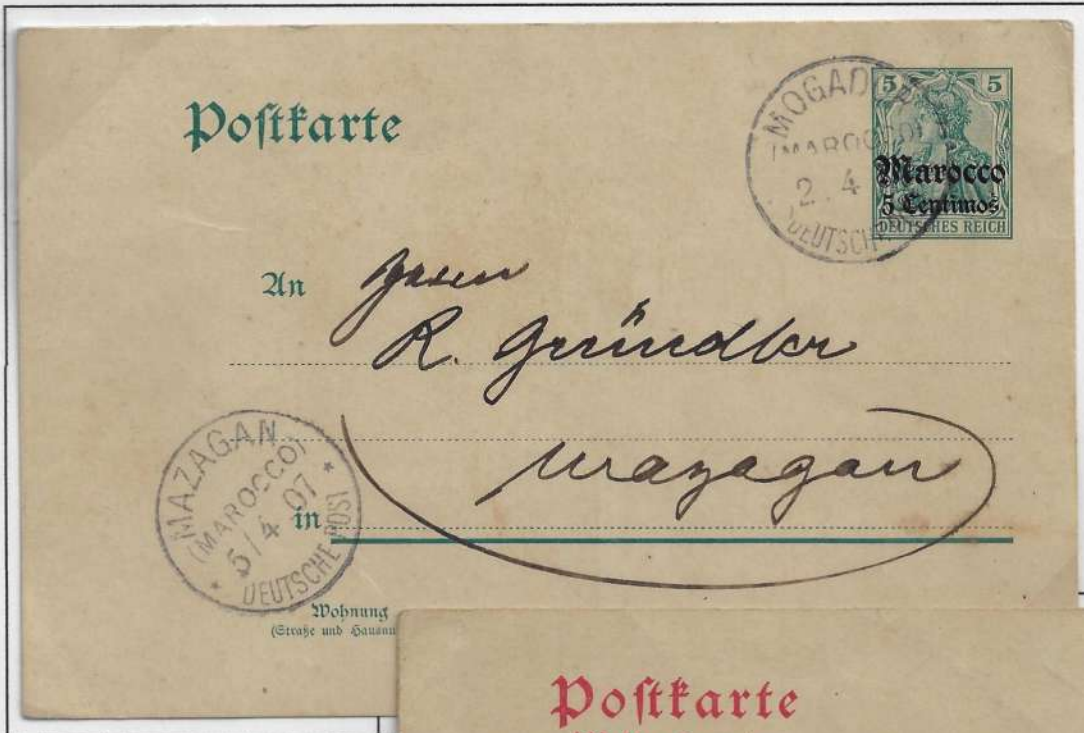 Postkarte
MOGAD
(MAROCCO)
2. 4
DEUTSCH
5 5
Marocco
5 Centimos
DEUTSCHES REICH
An
Herrn
R. Gründler
Mazagan
in
MAZAGAN
(MAROCCO)
5/4 07
* DEUTSCHE POST *
Wohnung
(Straße und Hausnu
Postkarte